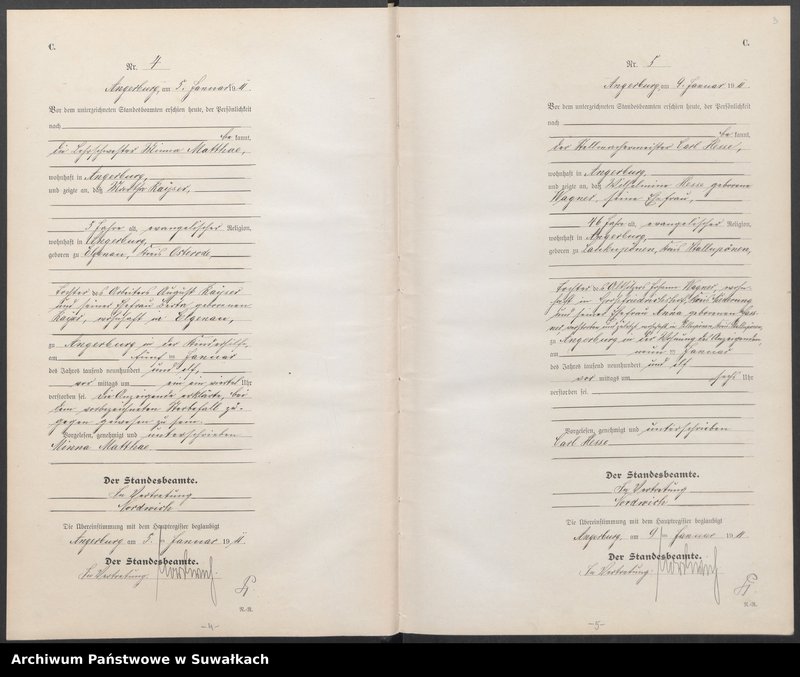 C.
Nr. 4
Angerburg, am 5. Januar 1911.
Vor dem unterzeichneten Standesbeamten erschien heute, der Persönlichkeit
nach
be kannt,
die Lehrschwester Minna Matthae,
wohnhaft in Angerburg,
und zeigte an, daß Martha Kayser,
5 Jahre alt, evangelischer Religion,
wohnhaft in Angerburg,
geboren zu Elgenau, Kreis Osterode,
Tochter des Arbeiters August Kayser
und seiner Ehefrau Berta geborenen
wohnhaft in Elgenau,
zu Angerburg in der
am fünf ten Januar
des Jahres tausend neunhundert und elf,
vor mittags um ein ein viertel Uhr
verstorben sei. Die Anzeigende erklärte, bei
dem vorbezeichneten Sterbefall zu-
gegen gewesen zu sein.
Vorgelesen, genehmigt und unterschrieben
Minna Matthae
Der Standesbeamte.
In Vertretung
Nordwich
Die Übereinstimmung mit dem Hauptregister beglaubigt
Angerburg am 5. ten Januar 1911.
Der Standesbeamte.
In Vertretung.
N.-R.
-4-
3
C.
Nr. 5
Angerburg, am 9. Januar 1911.
Vor dem unterzeichneten Standesbeamten erschien heute, der Persönlichkeit
nach
be kannt,
der Stellmachermeister Carl Hesse,
wohnhaft in Angerburg,
und zeigte an, daß Wilhelmine Hesse geborene
Wagner, seine Ehefrau,
46 Jahre alt, evangelischer Religion,
wohnhaft in Angerburg,
geboren zu Kreis Stallupönen,
Tochter des Johann Wagner, wohn-
haft in
und seiner Ehefrau Anna geborenen
verstorben und zuletzt wohnhaft in
zu Angerburg in der Wohnung des Anzeigenden,
am neun ten Januar
des Jahres tausend neunhundert und elf
vor mittags um sechs Uhr
verstorben sei.
Vorgelesen, genehmigt und unterschrieben
Carl Hesse
Der Standesbeamte.
In Vertretung
Nordwich
Die Übereinstimmung mit dem Hauptregister beglaubigt
Angerburg am 9 ten Januar 1911.
Der Standesbeamte.
In Vertretung.
N.-R.
-5-
Archiwum Państwowe w Suwałkach